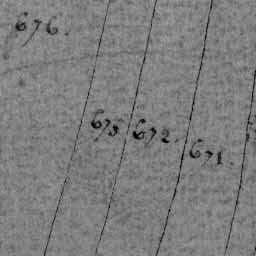 676.
673
672.
671.